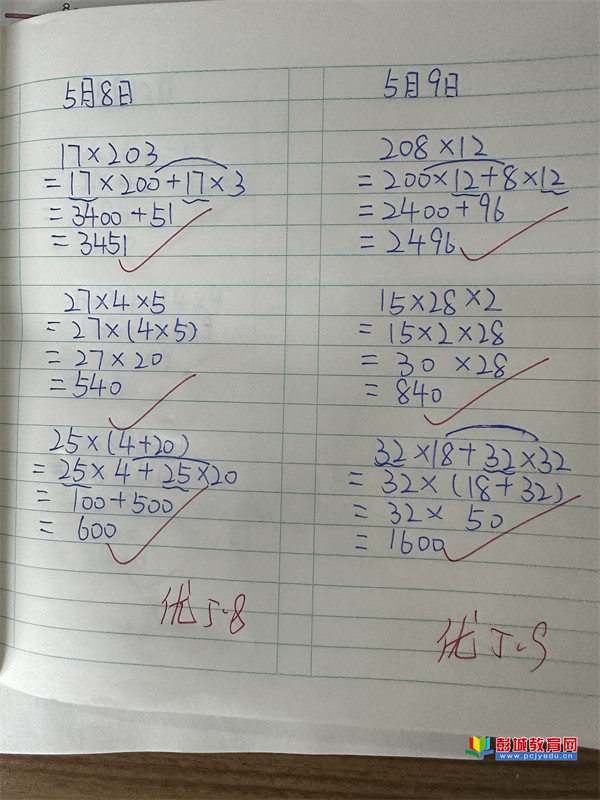 5月8日
17×203
=17×200+17×3
=3400+51
=3451
27×4×5
=27×(4×5)
=27×20
=540
25×(4+20)
=25×4+25×20
=100+500
=600
优 5.8
5月9日
208×12
=200×12+8×12
=2400+96
=2496
15×28×2
=15×2×28
=30×28
=840
32×18+32×32
=32×(18+32)
=32×50
=1600
优 5.9
彭城教育网
www.pcjyedu.cn